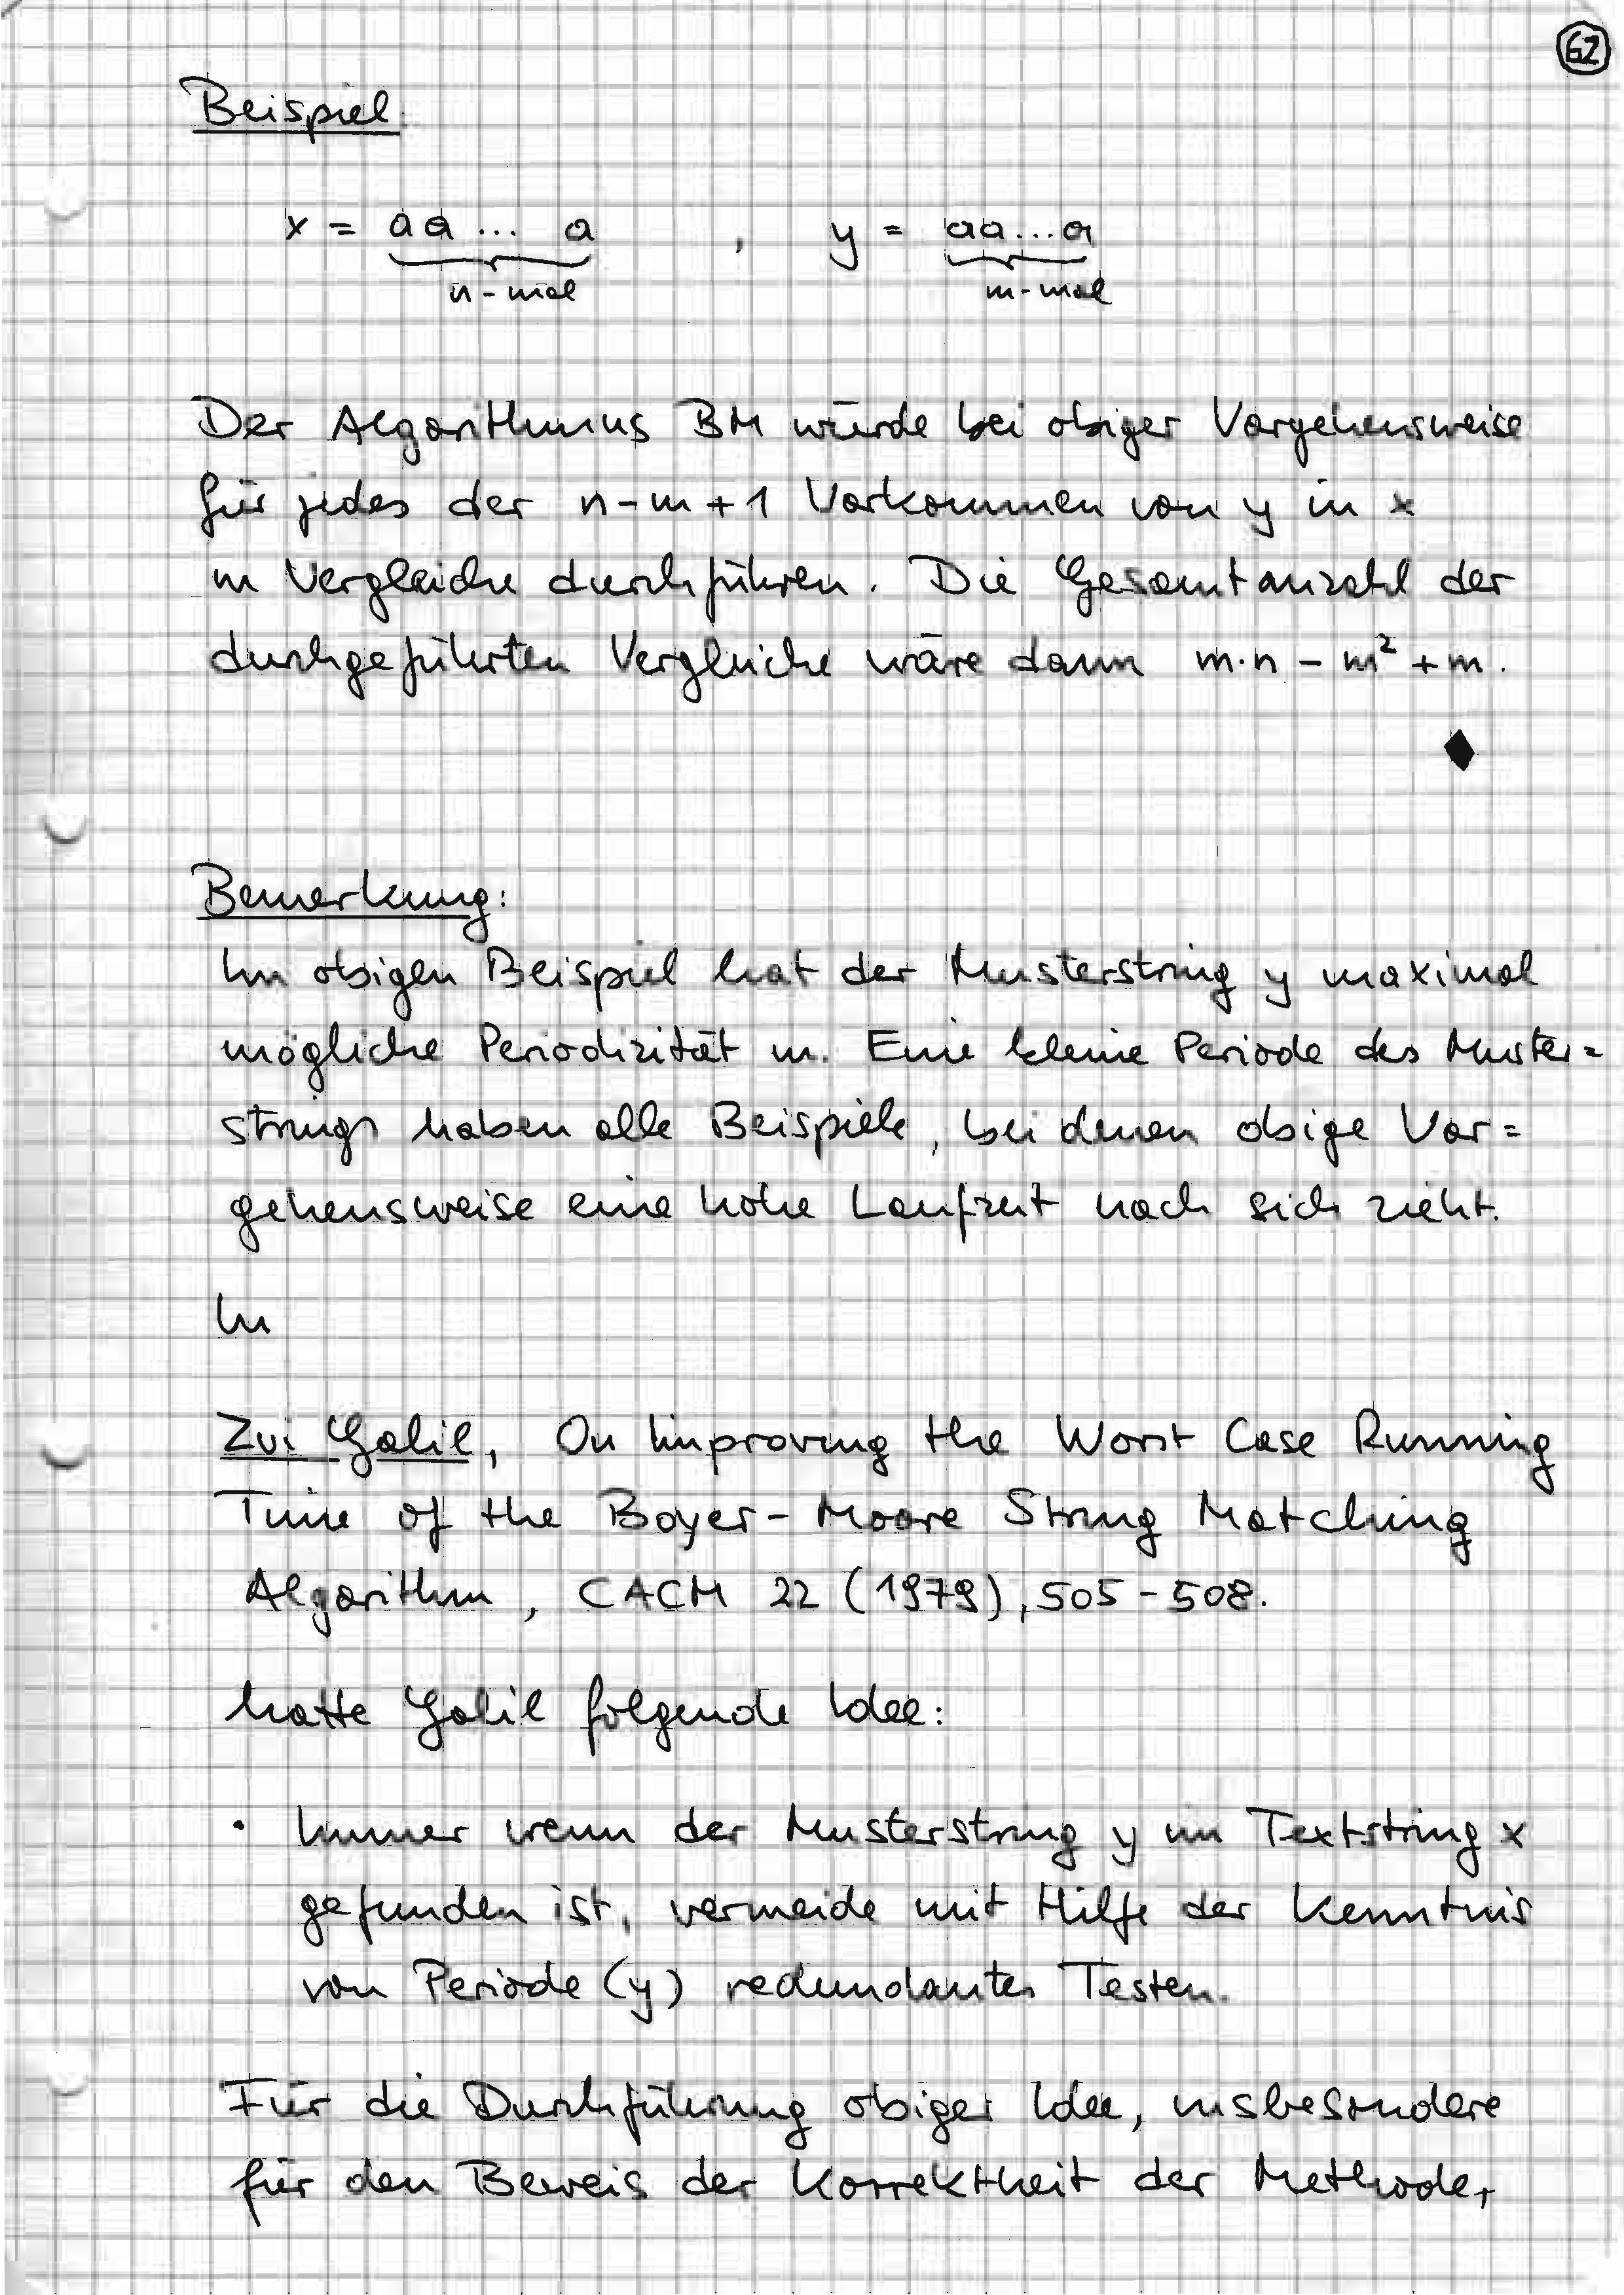 62
Beispiel
x = aa... a , y = aa...a
n-mal m-mal
Der Algorithmus BM würde bei obiger Vorgehensweise
für jedes der n-m+1 Vorkommen von y in x
m Vergleiche durchführen. Die Gesamtanzahl der
durchgeführten Vergleiche wäre dann m·n - m² + m.
Bemerkung:
Im obigen Beispiel hat der Musterstring y maximal
mögliche Periodizität m. Eine kleine Periode des Muster=
strings haben alle Beispiele, bei denen obige Vor=
gehensweise eine hohe Laufzeit nach sich zieht.
In
Zvi Galil, On Improving the Worst Case Running
Time of the Boyer-Moore String Matching
Algorithm, CACM 22 (1979), 505-508.
hatte Galil folgende Idee:
• Immer wenn der Musterstring y im Textstring x
gefunden ist, vermeide mit Hilfe der Kenntnis
von Periode(y) redundantes Testen.
Für die Durchführung obiger Idee, insbesondere
für den Beweis der Korrektheit der Methode,